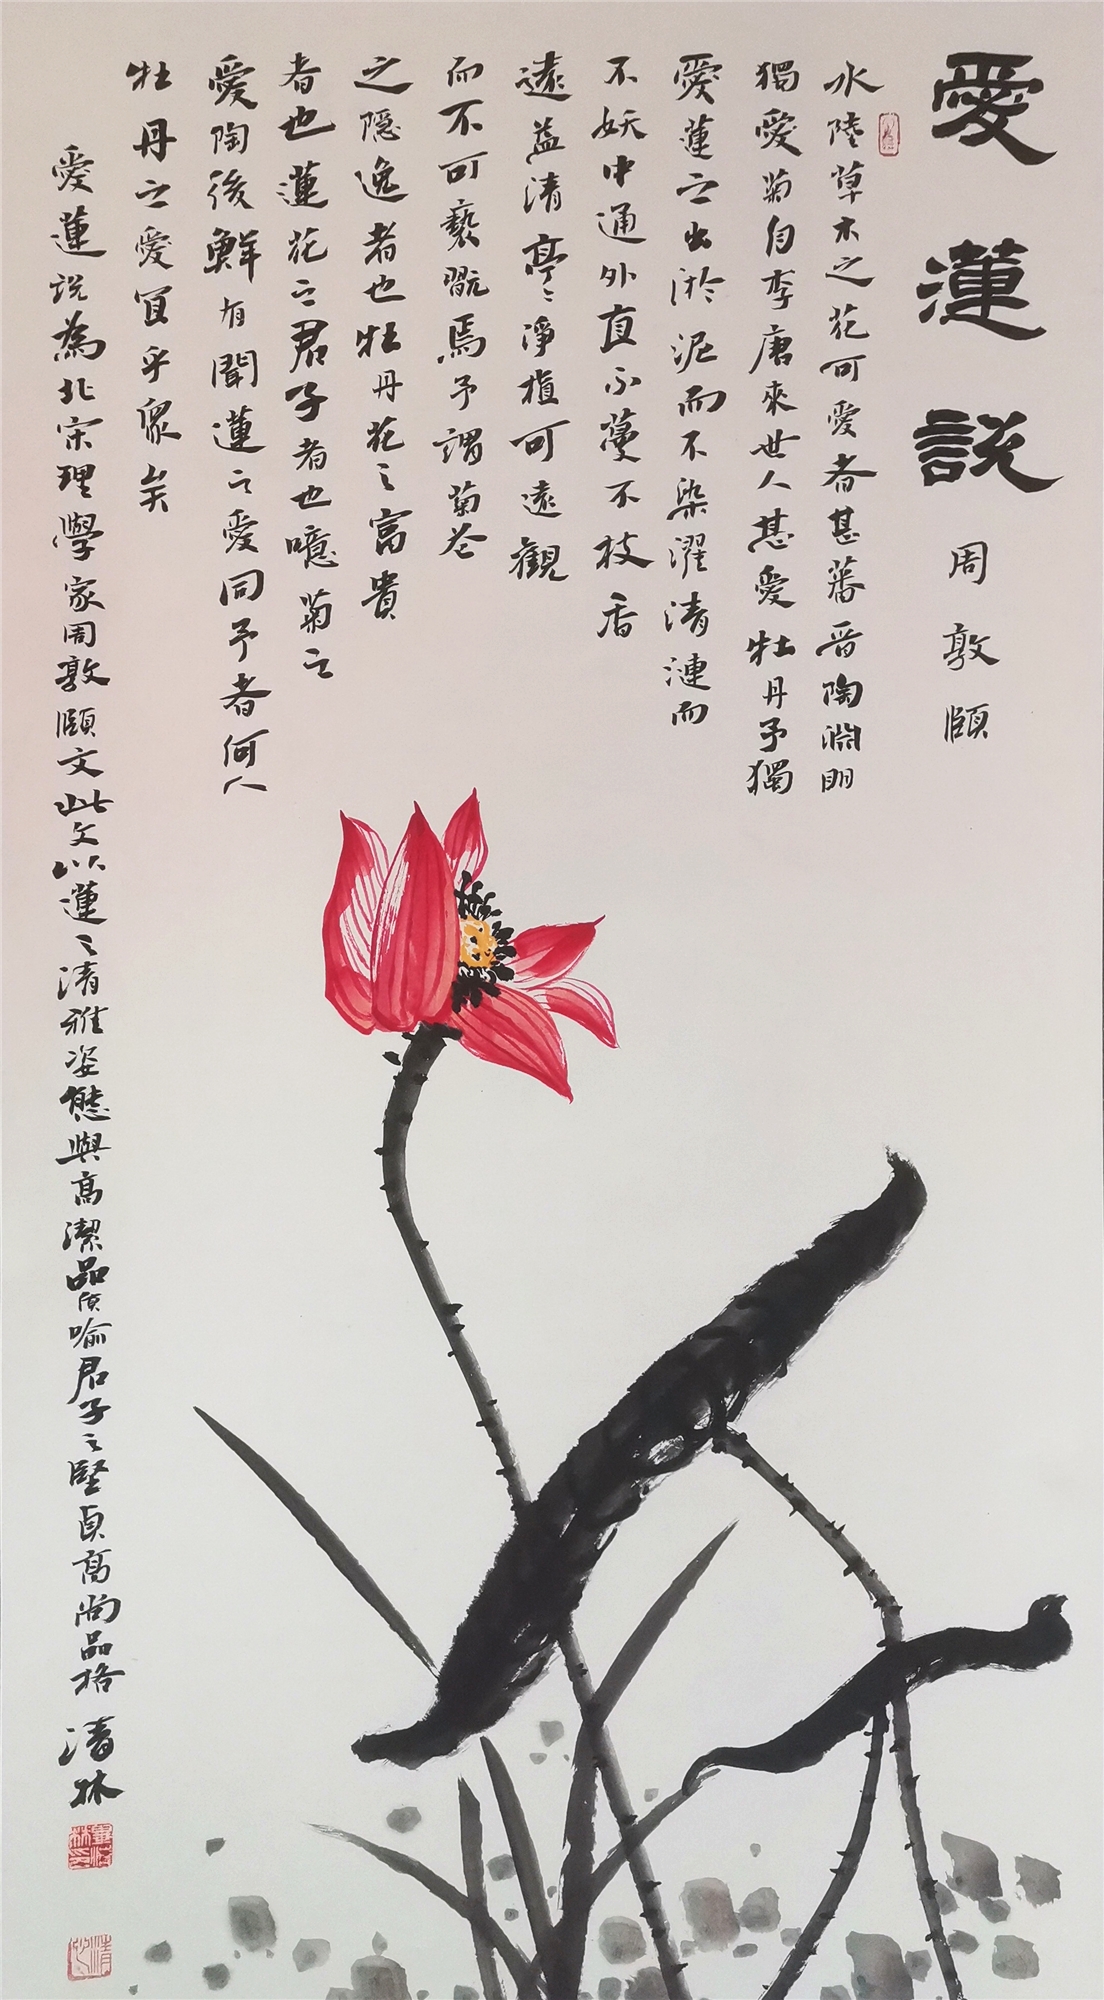 愛蓮說
周敦頤
水陸草木之花可愛者甚蕃晋陶淵明
獨愛菊自李唐來世人甚愛牡丹予獨
愛蓮之出淤泥而不染濯清漣而
不妖中通外直不蔓不枝香
遠益清亭亭淨植可遠觀
而不可褻翫焉予謂菊花
之隱逸者也牡丹花之富貴
者也蓮花之君子者也噫菊之
愛陶後鮮有聞蓮之愛同予者何人
牡丹之愛宜乎眾矣
愛蓮說為北宋理學家周敦頤文此文以蓮之清雅姿態與高潔品質喻君子之堅貞高尚品格
清林